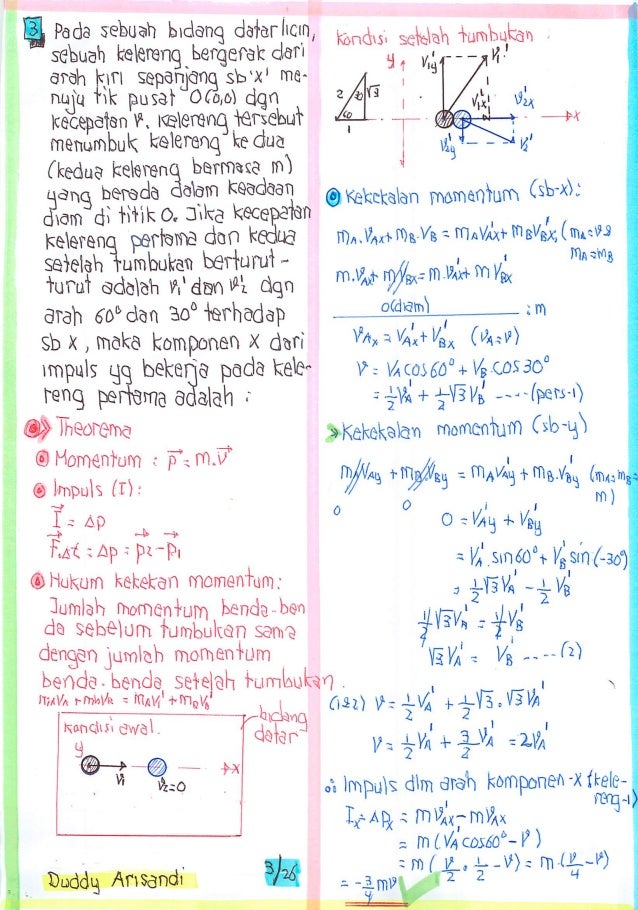 3 Pada sebuah bidang datar licin,
sebuah kelereng bergerak dari
arah kiri sepanjang sb 'x' me-
nuju tik pusat O(0,0) dgn
kecepatan v. Kelereng tersebut
menumbuk kelereng ke dua
(kedua kelereng bermasa m)
yang berada dalam keadaan
diam di titik O. Jika kecepatan
kelereng pertama dan kedua
setelah tumbukan berturut-
turut adalah v₁' dan v₂' dgn
arah 60° dan 30° terhadap
sb x, maka komponen X dari
impuls yg bekerja pada kele-
reng pertama adalah :
Theorema
Momentum : p = m.v
Impuls (I) :
I = Δp
F.Δt = Δp = p₂ - p₁
Hukum kekekan momentum:
Jumlah momentum benda-ben
da sebelum tumbukan sama
dengan jumlah momentum
benda-benda setelah tumbukan
mAVA + mBVB = mAVA' + mBVB'
bidang
datar
kondisi awal.
y
x
v₁
v₂=0
Duddy Arisandi
3/26
kondisi setelah tumbukan
y
V₁y'
V₁'
2
30
√3
60
1
V₁x'
V₂x'
x
V₂y'
V₂'
Kekekalan momentum (sb-x):
mA.VAx + mB.VB = mAVAx' + mBVBx', (
mA=mB
m.VAx + m VBx = m.VAx' + m VBx'
0(diam) : m
VAx = VAx' + VBx' (VA=v)
v = VA' cos 60° + VB' cos 30°
= 1/2 VA' + 1/2 √3 VB' ---- (pers-1)
Kekekalan momentum (sb-y)
mAVAy + mBVBy = mAVAy' + mB.VBy' (mA=mB=
m)
0 0
0 = VAy' + VBy'
= VA'.sin 60° + VB' sin (-30°)
= 1/2 √3 VA' - 1/2 VB'
1/2 √3 VA' = 1/2 VB'
√3 VA' = VB' ---- (2)
(1&2) v = 1/2 VA' + 1/2 √3 . √3 VA'
v = 1/2 VA' + 3/2 VA' = 2VA'
∴ Impuls dlm arah komponen-x {kele-
reng-1}
Ix = ΔPx = m VAx' - m VAx
= m (VA' cos 60° - v)
= m (v/2 . 1/2 - v) = m.(v/4 - v)
= -3/4 mv